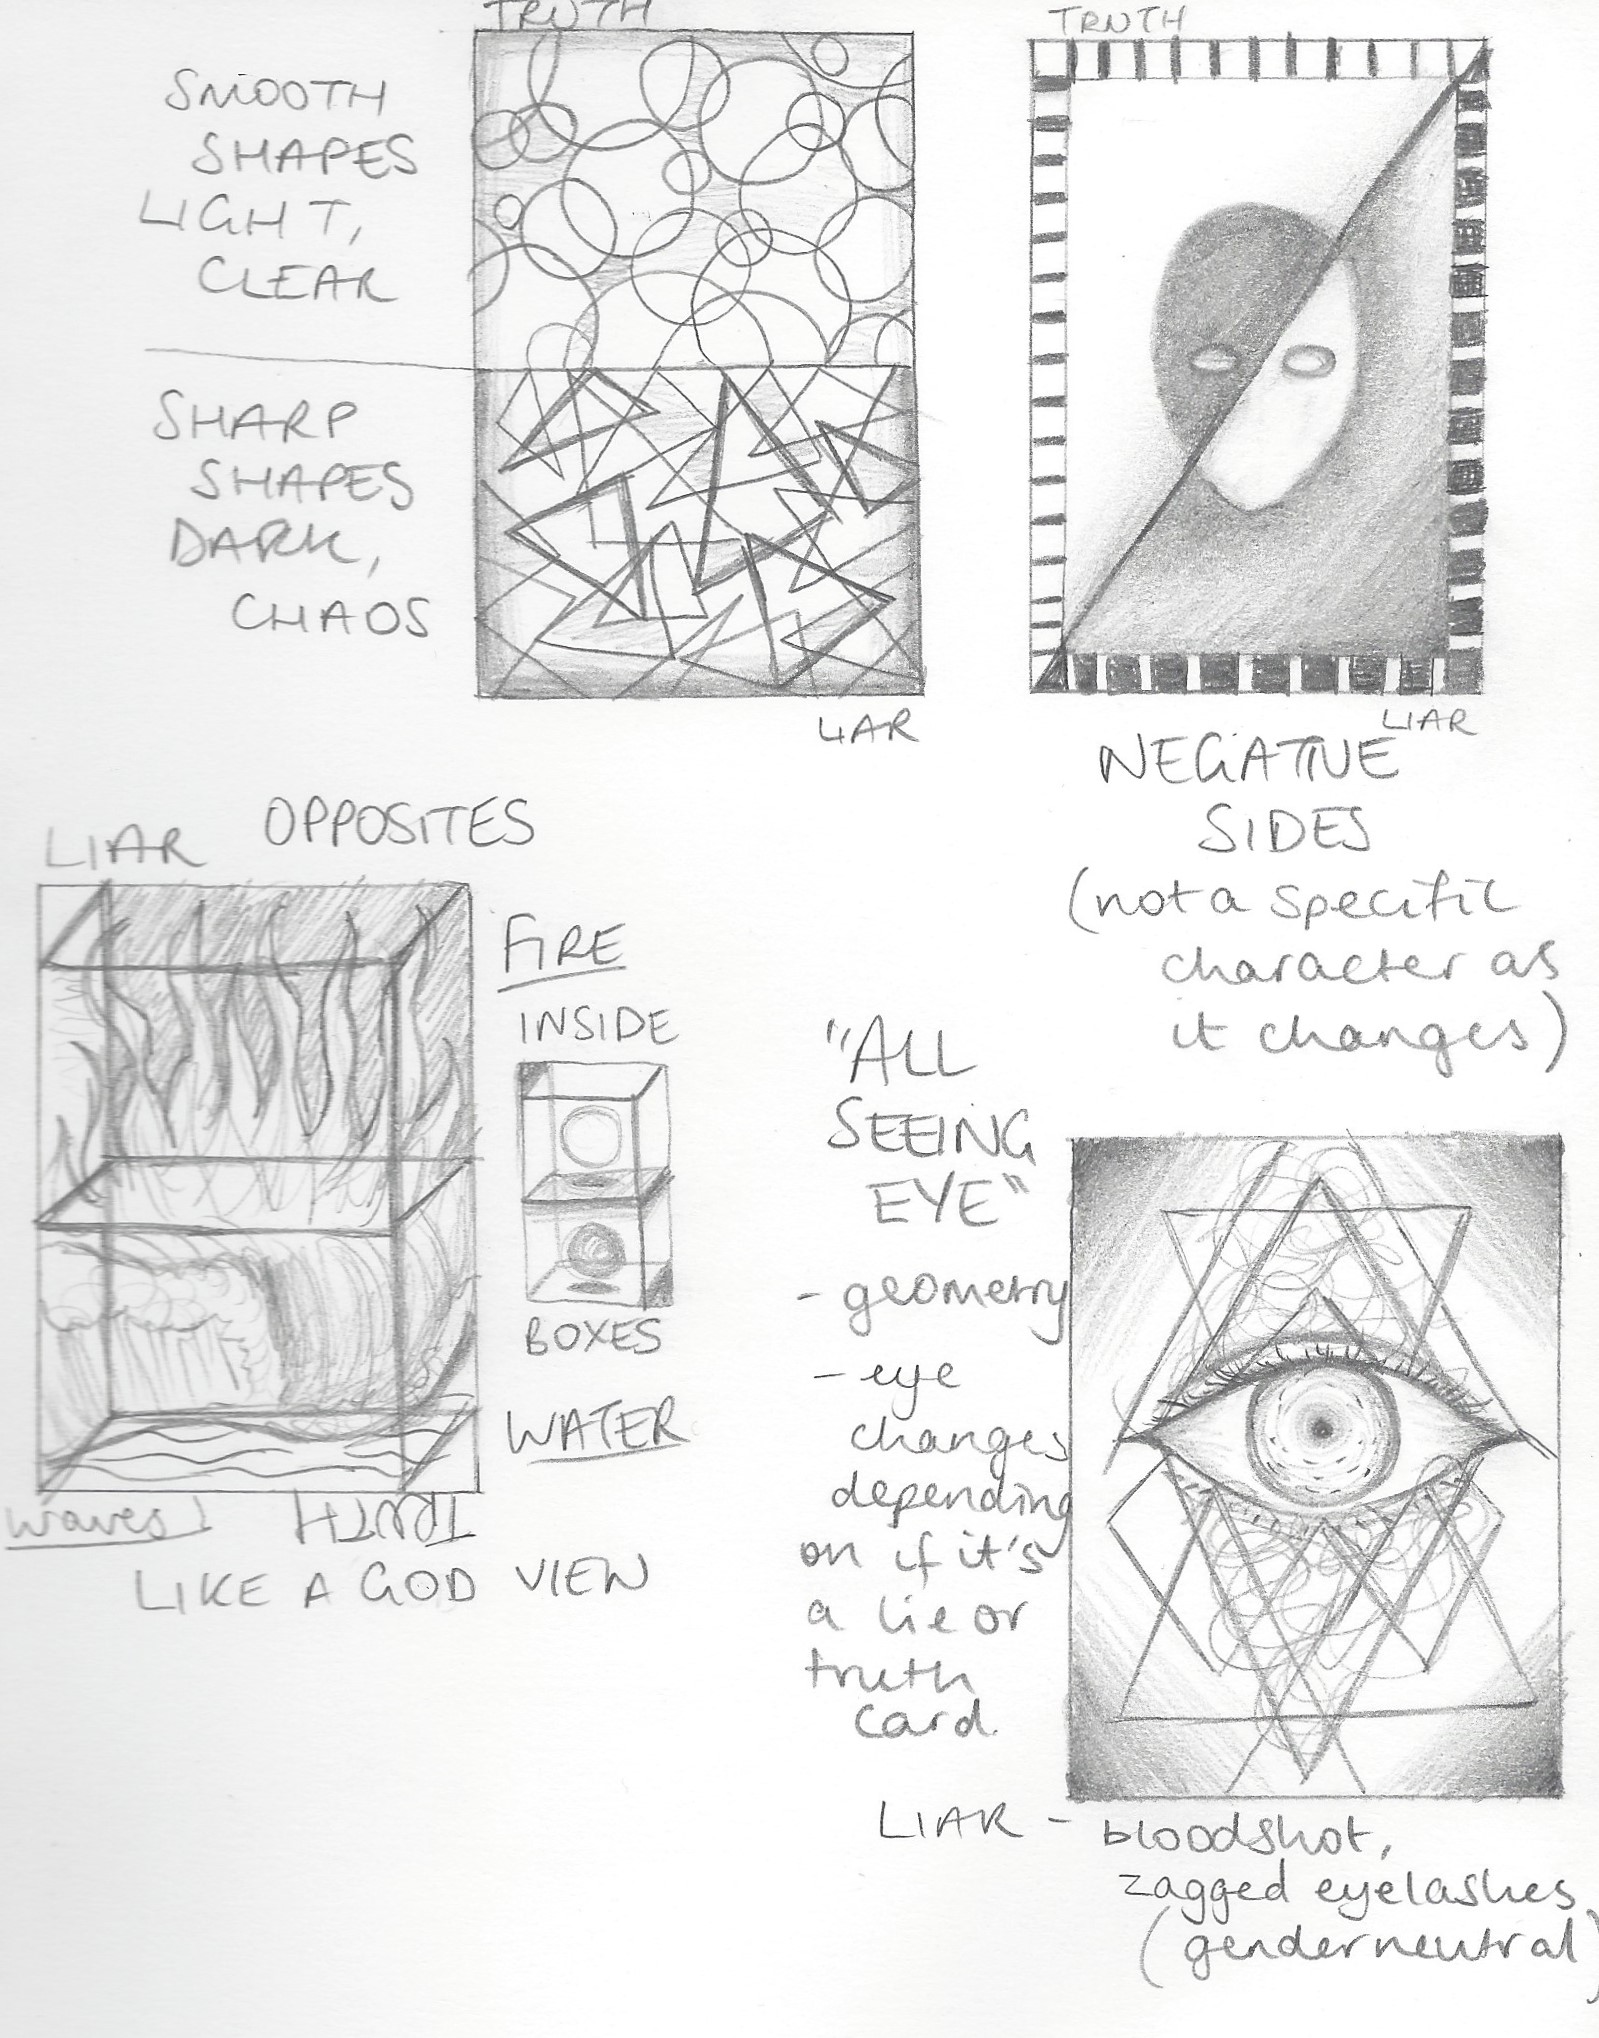 TRUTH
SMOOTH
SHAPES
LIGHT,
CLEAR
SHARP
SHAPES
DARK,
CHAOS
LIAR
TRUTH
LIAR
NEGATIVE
SIDES
(not a specific
character as
it changes)
OPPOSITES
LIAR
FIRE
INSIDE
BOXES
WATER
waves
TRUTH
LIKE A GOD VIEW
"ALL
SEEING
EYE"
- geometry
- eye
changes
depending
on if it's
a lie or
truth
card.
LIAR - bloodshot,
zagged eyelashes
(genderneutral)